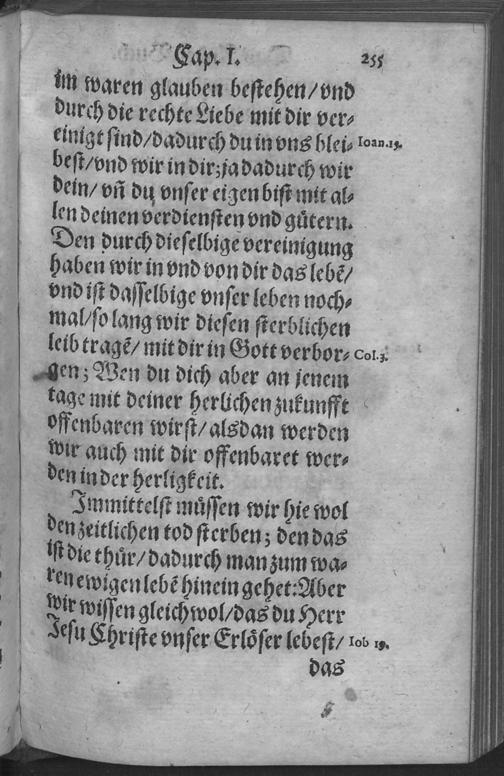 Cap. I. 255
im waren glauben bestehen/ vnd
durch die rechte Liebe mit dir ver-
einigt sind/ dadurch du in vns blei- Ioan.15.
best/ vnd wir in dir; ja dadurch wir
dein/ vñ du vnser eigen bist mit al-
len deinen verdiensten vnd gütern.
Den durch dieselbige vereinigung
haben wir in vnd von dir das lebẽ/
vnd ist dasselbige vnser leben noch-
mal/ so lang wir diesen sterblichen
leib tragẽ/ mit dir in Gott verbor- Col.3.
gen; Wen du dich aber an jenem
tage mit deiner herlichen zukunfft
offenbaren wirst/ alsdan werden
wir auch mit dir offenbaret wer-
den in der herligkeit.
Immittelst müssen wir hie wol
den zeitlichen tod sterben; den das
ist die thür/ dadurch man zum wa-
ren ewigen lebẽ hinein gehet: Aber
wir wissen gleichwol/ das du Herr
Jesu Christe vnser Erlöser lebest/ Iob 19.
das